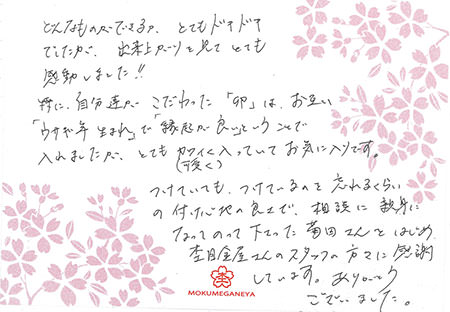 どんなものができるか、とてもドキドキ
でしたが、出来上がりを見てとても
感動しました!!
特に、自分達がこだわった「卯」は、お互い
「ウサギ年生まれ」で「縁起が良い」ということで
入れましたが、とてもカワイく入っていてお気に入りです。
(可愛く)
つけていても、つけているのを忘れるくらい
の付け心地の良さで、相談に親身に
なってのって下さった菊田さんをはじめ
杢目金屋さんのスタッフの方々に感謝
しています。ありがとう
ございました。
MOKUMEGANEYA